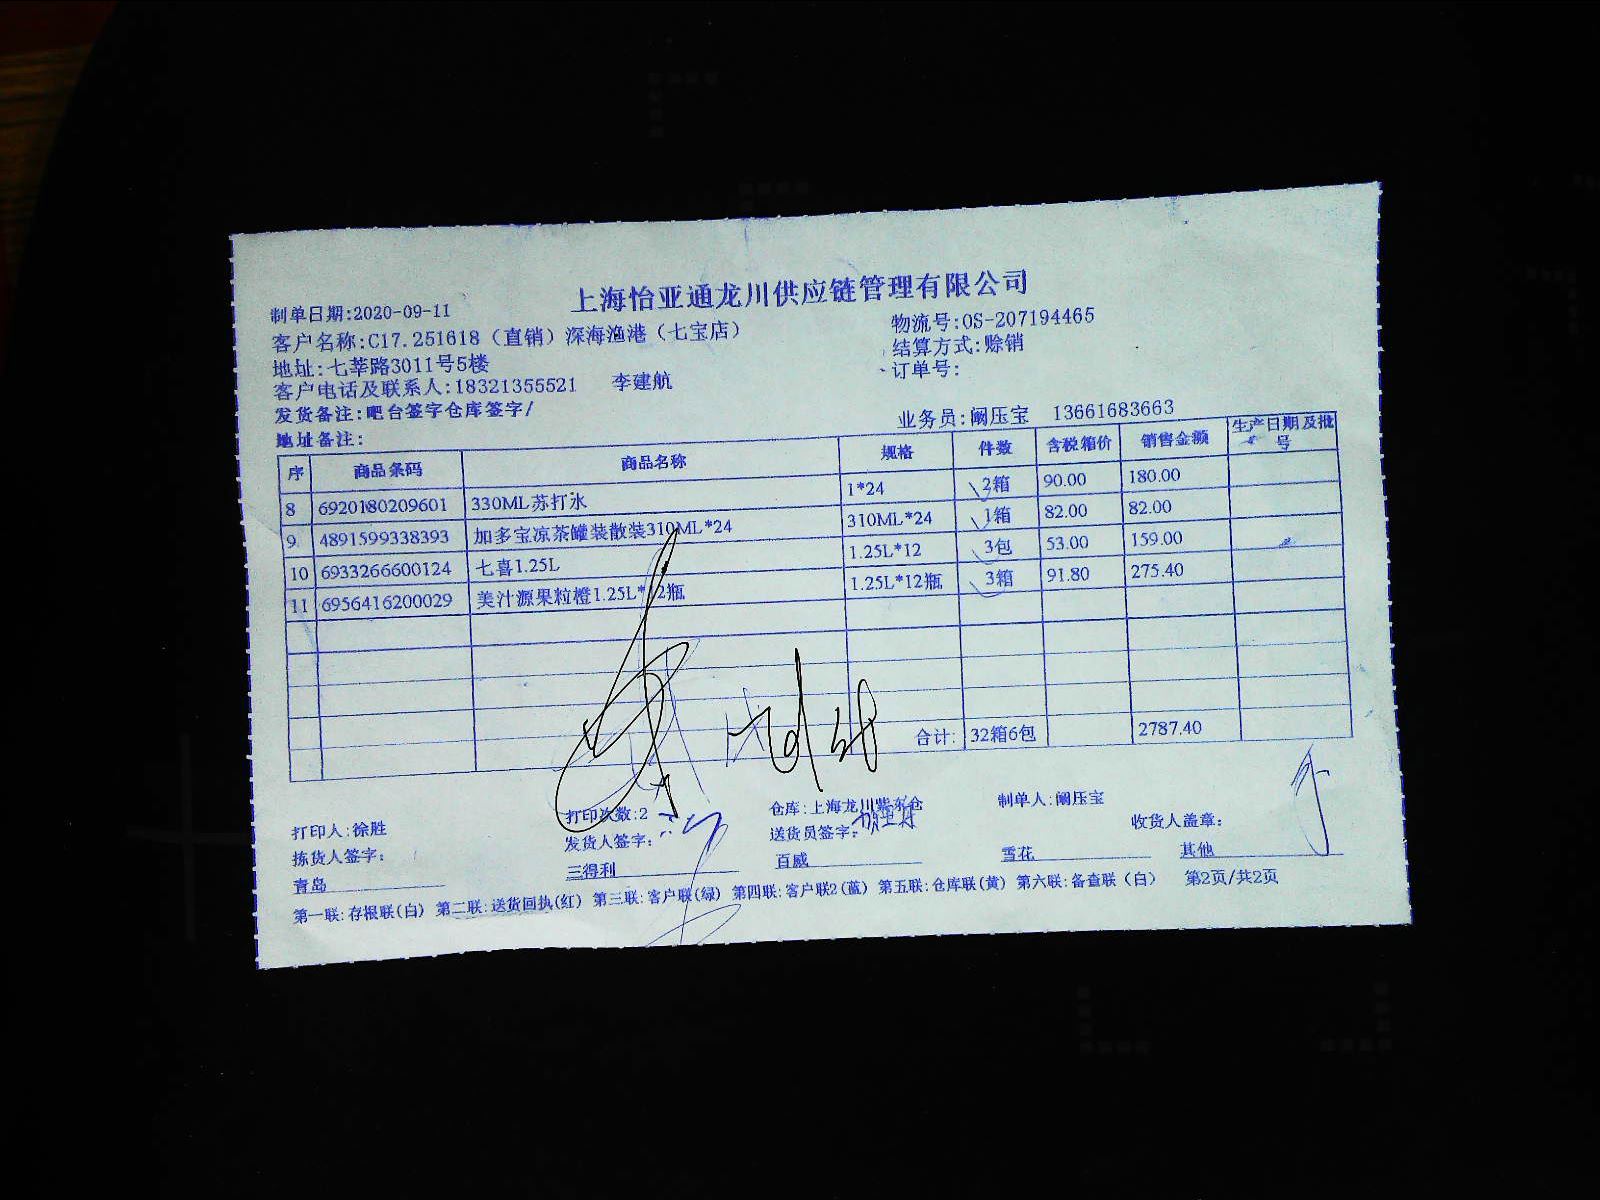 上海怡亚通龙川供应链管理有限公司
制单日期:2020-09-11
客户名称:C17.251618（直销）深海渔港（七宝店） 物流号:OS-207194465
地址:七莘路3011号5楼 结算方式:赊销
客户电话及联系人:18321355521 李建航 订单号:
发货备注:吧台签字仓库签字/
地址备注: 业务员:阚压宝 13661683663
序 商品条码 商品名称 规格 件数 含税箱价 销售金额 生产日期及批号
8 6920180209601 330ML苏打水 1*24 2箱 90.00 180.00
9 4891599338393 加多宝凉茶罐装散装310ML*24 310ML*24 1箱 82.00 82.00
10 6933266600124 七喜1.25L 1.25L*12 3包 53.00 159.00
11 6956416200029 美汁源果粒橙1.25L*12瓶 1.25L*12瓶 3箱 91.80 275.40
合计: 32箱6包 2787.40
打印人:徐胜 打印次数:2 仓库:上海龙川紫东仓 制单人:阚压宝
拣货人签字: 发货人签字: 送货员签字: 收货人盖章:
青岛 三得利 百威 雪花 其他
第一联:存根联(白) 第二联:送货回执(红) 第三联:客户联(绿) 第四联:客户联2(蓝) 第五联:仓库联(黄) 第六联:备查联（白） 第2页/共2页